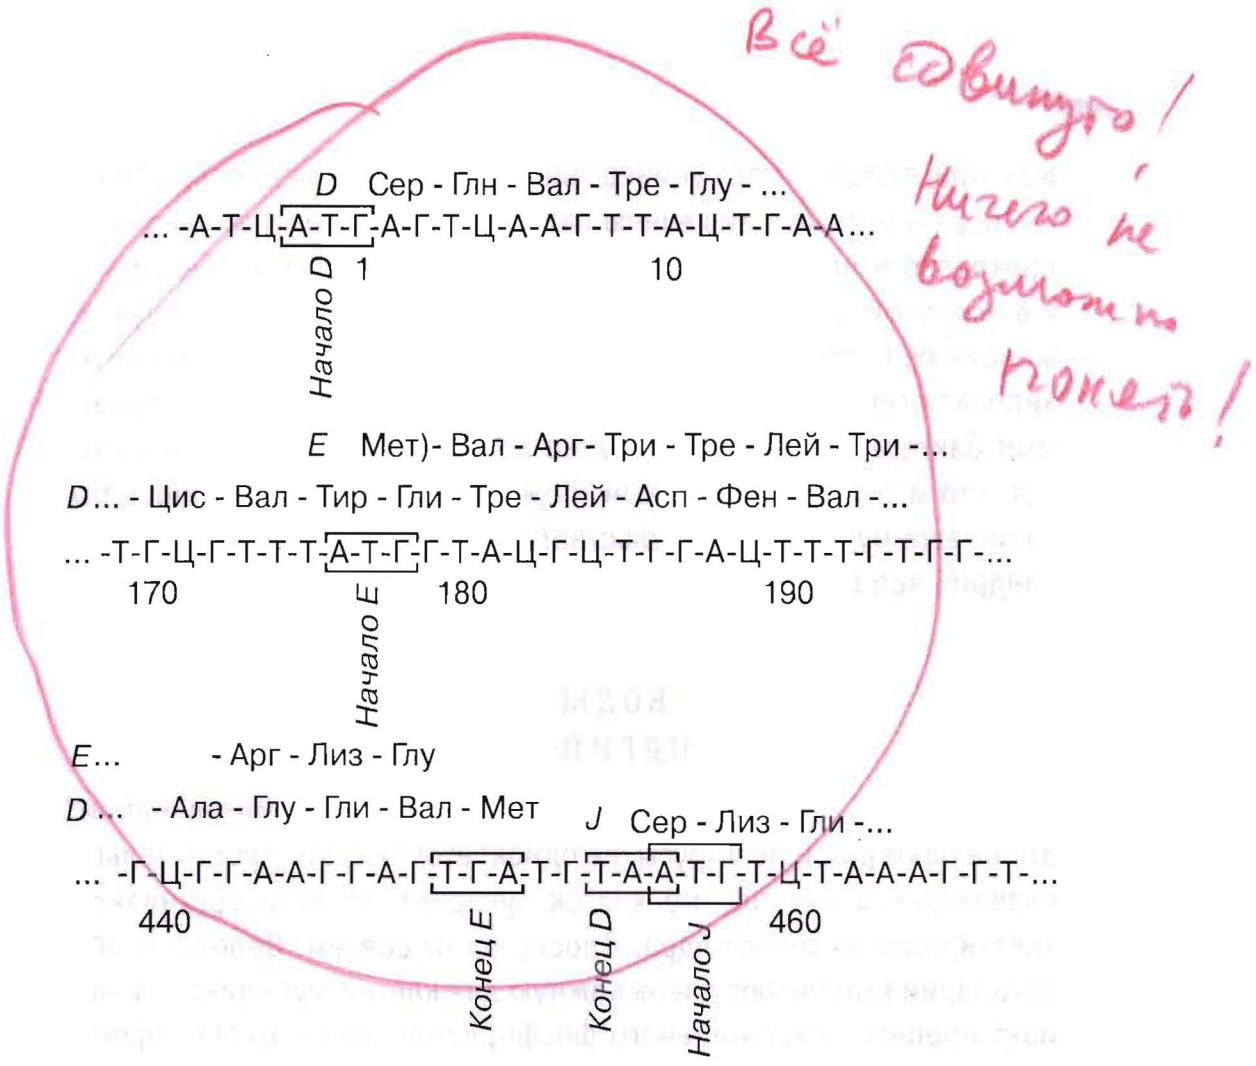 Всё сдвинуто!
Ничего не
возможно
понять!
D Сер - Глн - Вал - Тре - Глу - ...
... -А-Т-Ц-А-Т-Г-А-Г-Т-Ц-А-А-Г-Т-Т-А-Ц-Т-Г-А-А...
1 10
Начало D
E Мет)- Вал - Арг- Три - Тре - Лей - Три -...
D... - Цис - Вал - Тир - Гли - Тре -Лей -Асп - Фен - Вал -...
... -Т-Г-Ц-Г-Т-Т-Т-А-Т-Г-Г-Т-А-Ц-Г-Ц-Т-Г-Г-А-Ц-Т-Т-Т-Г-Т-Г-Г-...
170 180 190
Начало E
E... - Арг - Лиз - Глу
D... - Ала - Глу - Гли - Вал - Мет
J Сер - Лиз - Гли -...
... -Г-Ц-Г-Г-А-А-Г-Г-А-Г-Т-Г-А-Т-Г-Т-А-А-Т-Г-Т-Ц-Т-А-А-А-Г-Г-Т-...
440 460
Конец E
Конец D
Начало J